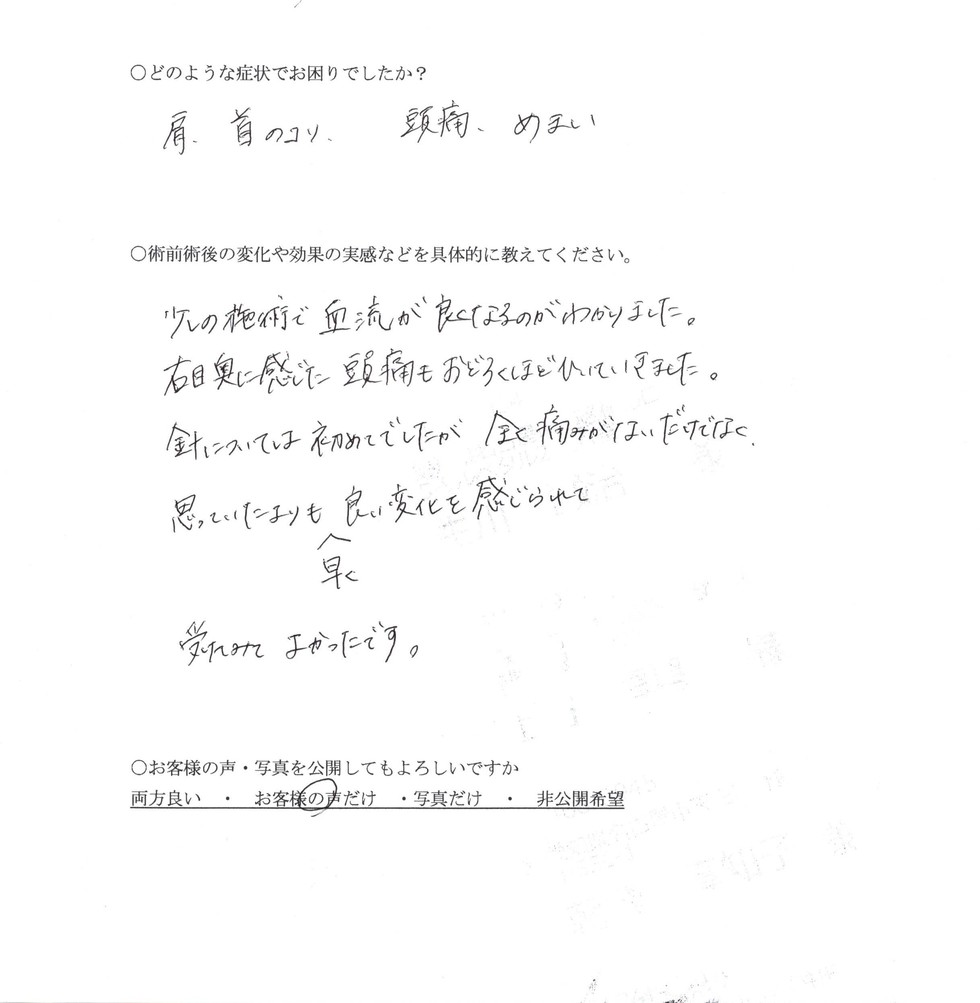 ○どのような症状でお困りでしたか？
肩、首のコリ、 頭痛、めまい
○術前術後の変化や効果の実感などを具体的に教えてください。
少しの施術で血流が良くなるのがわかりました。
右目奥に感じた頭痛もおどろくほどひいていきました。
針については初めてでしたが全く痛みがないだけでなく、
思っていたよりも良い変化を感じられて
早く
受けてみてよかったです。
○お客様の声・写真を公開してもよろしいですか
両方良い ・ お客様の声だけ ・写真だけ ・ 非公開希望